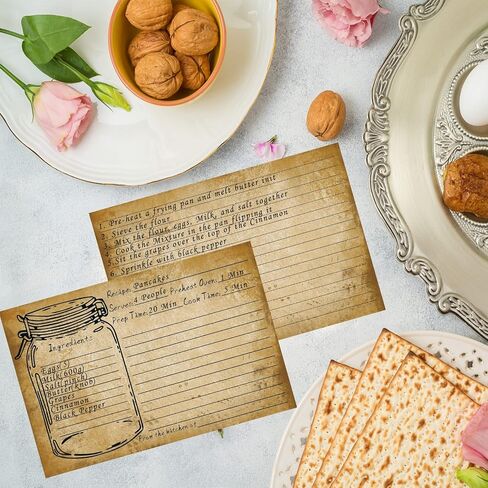 1. Pre-heat a frying pan and melt butter init
2. Sieve the flour
3. Mix the flour, eggs, Milk, and salt together
4. Cook the Mixture in the pan flipping it
5. Sit the grapes over the top of the Cinnamon
6. Sprinkle with black pepper
Recipe: Pancakes
Serves: 4 People Preheat Oven: 1 Min
Prep Time: 20 Min Cook Time: 5 Min
Ingredient:
Eggs(5)
Milk(600g)
Salt(pinch)
Butter(knob)
Grapes
Cinnamon
Black Pepper
From the kitchen of